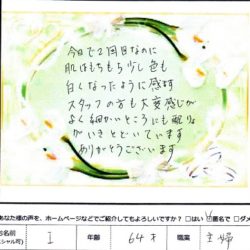 今日で2回目なのに
肌はもちもち少し色も
白くなったように感ます
スタッフの方も大変感じが
よく細かいところにも配り
がいきとどいています
ありがとうございます
あなた様の声を、ホームページなどでご紹介してもよろしいですか？ □はい ☑匿名で □ダメ
お名前 I 年齢 64才 職業 主婦
シャル可)